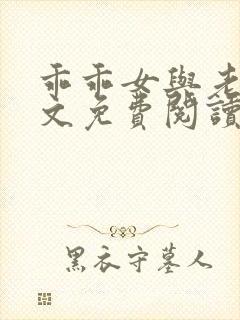 乖乖女與老
文免費閱讀
黑衣守墓人